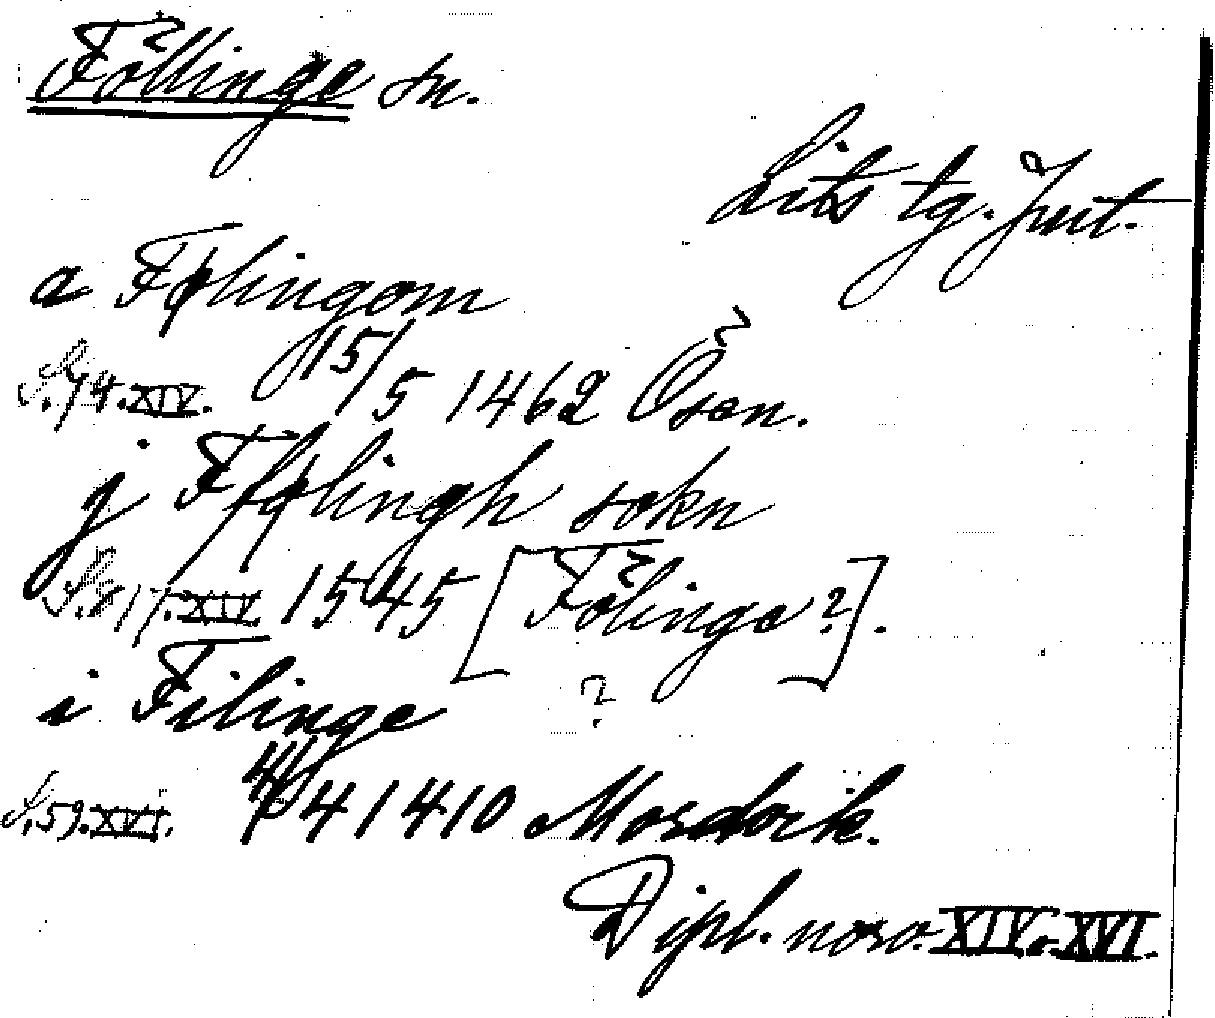 Föllinge sn.
Lits tg. Jmt.
a Fφlingom
S. 74. XIV. 15/5 1462 Ösen.
j Ffølingh sokn
S. 817. XIV. 1545 [Fölinge?].
i Filinge ?
S. 59. XVI. 4/4 1410 Mordvik.
Dipl. norv. XIV o. XVI.